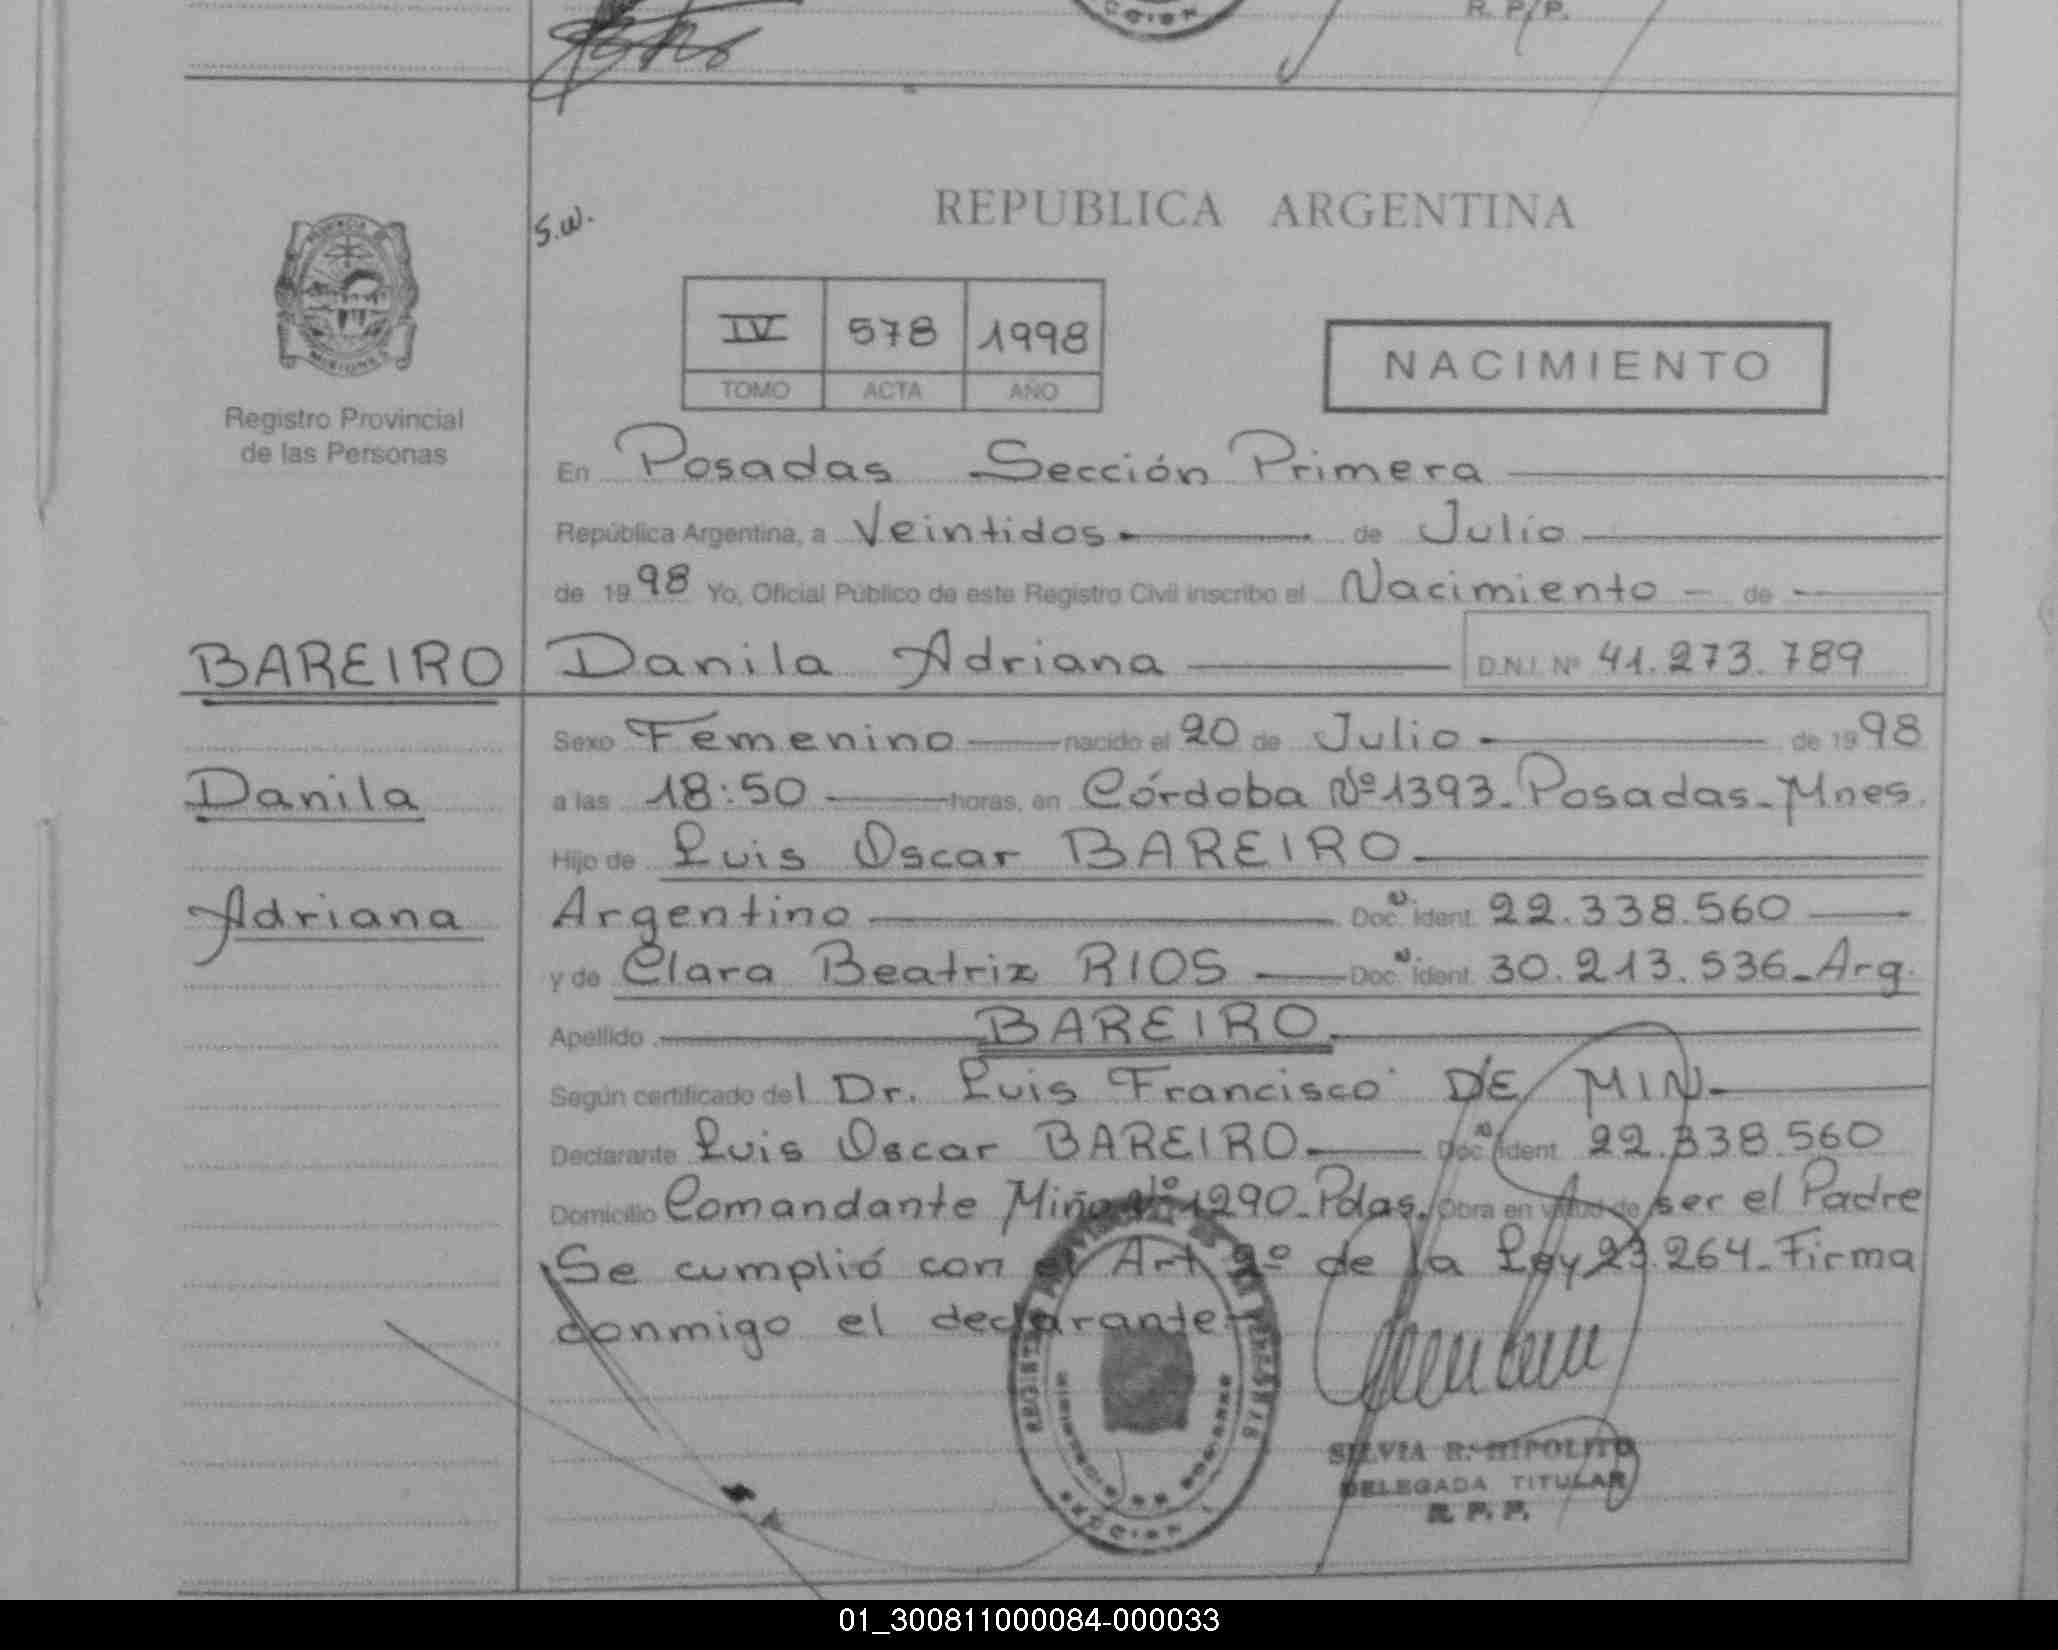 R. P. P.
REPUBLICA ARGENTINA
S.W.
IV 578 1998
TOMO ACTA AÑO
NACIMIENTO
Registro Provincial
de las Personas
En Posadas Sección Primera
República Argentina, a Veintidos de Julio
de 1998 Yo, Oficial Público de este Registro Civil inscribo el Nacimiento de
BAREIRO Danila Adriana D.N.I. Nº 41.273.789
Sexo Femenino nacido el 20 de Julio de 1998
Danila a las 18:50 horas, en Córdoba Nº 1393-Posadas-Mnes.
Hijo de Luis Oscar BAREIRO
Adriana Argentino Doc. Ident. 22.338.560
y de Clara Beatriz RIOS Doc. Ident. 30.213.536-Arg.
Apellido BAREIRO
Según certificado del Dr. Luis Francisco DE MIN
Declarante Luis Oscar BAREIRO Doc. Ident 22.338.560
Domicilio Comandante Miño Nº 1290-Pdas. Obra en virtud de ser el Padre
Se cumplió con el Art 2º de la Ley 23.264-Firma
conmigo el declarante-
SILVIA R. HIPOLITO
DELEGADA TITULAR
R. P. P.
01_300811000084-000033